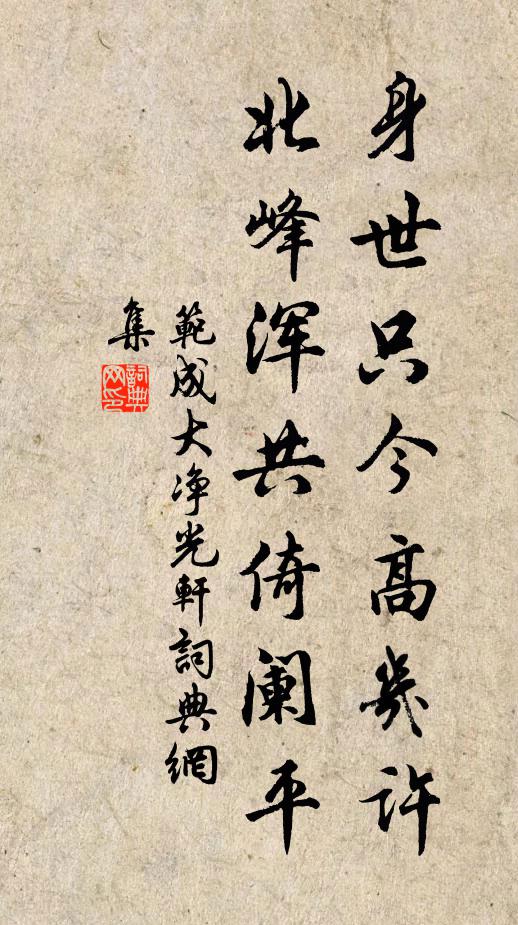 身世只今高几许
北峰浑共倚阑平
範成大净光軒詞典網
集
詞典
网印